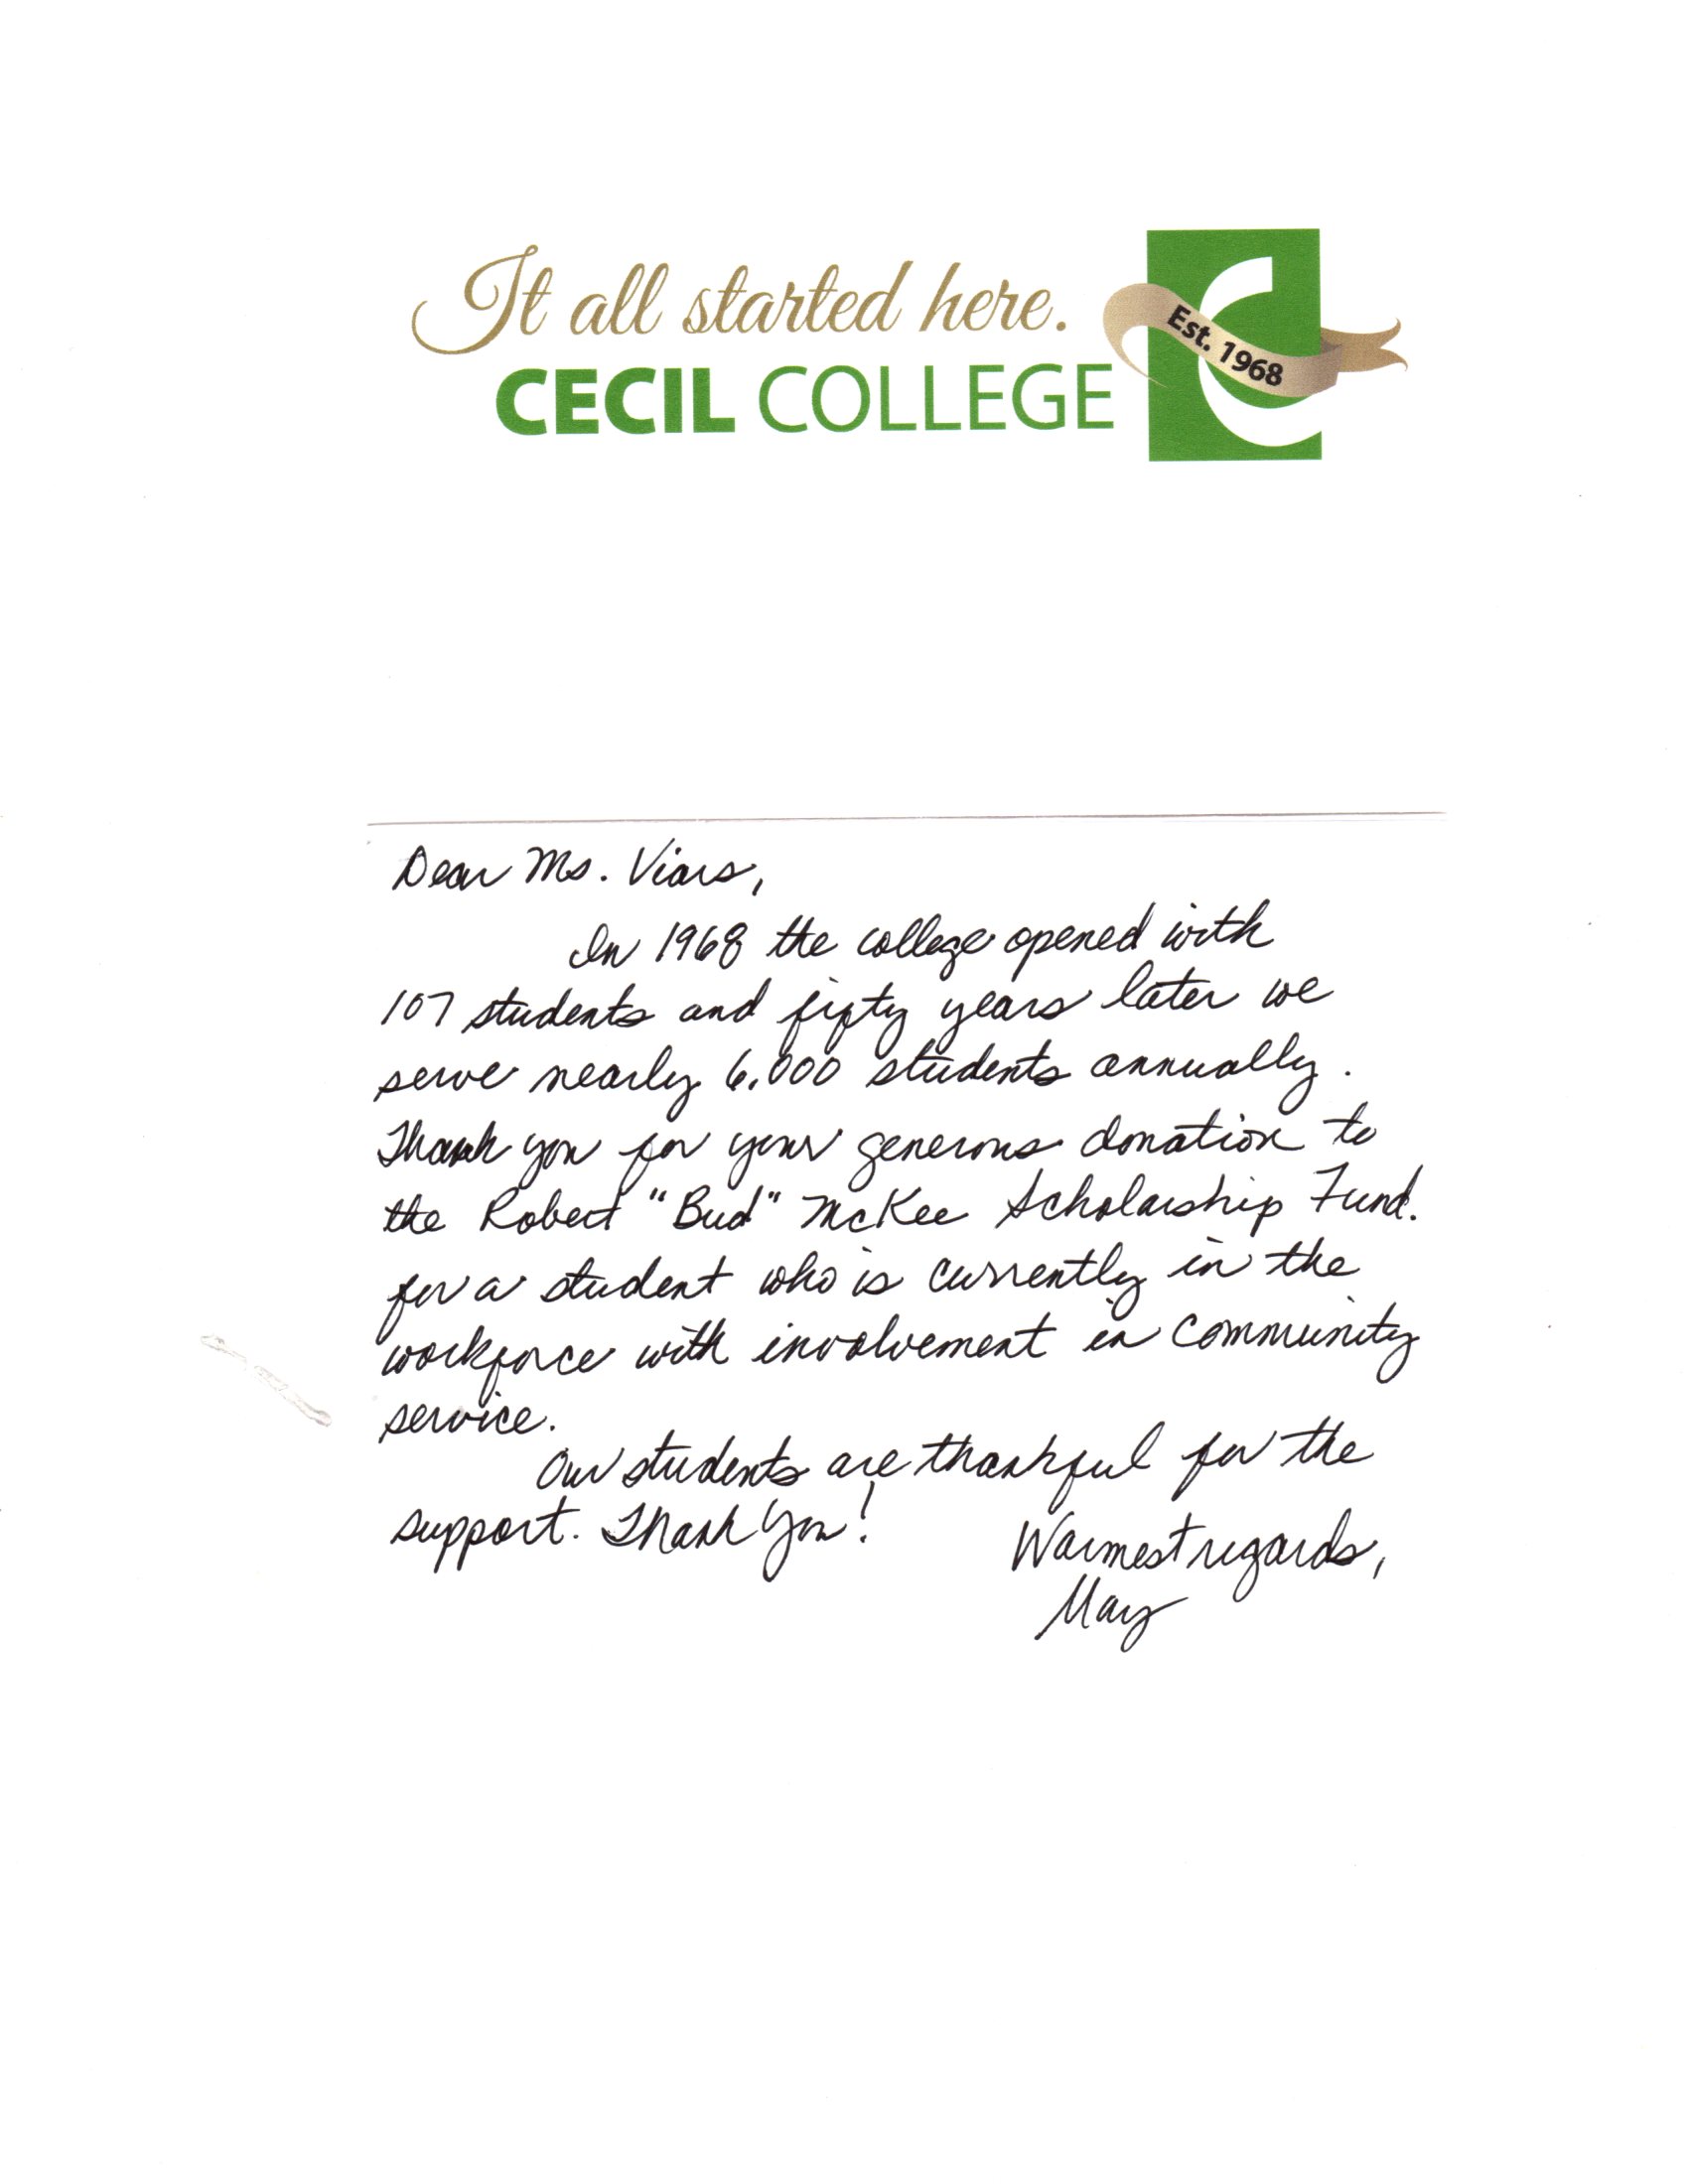 It all started here.
CECIL COLLEGE
Est. 1968
Dear Ms. Viars,
In 1968 the college opened with
107 students and fifty years later we
serve nearly 6,000 students annually.
Thank you for your generous donation to
the Robert "Bud" McKee Scholarship Fund.
for a student who is currently in the
workforce with involvement in community
service.
Our students are thankful for the
support. Thank You!
Warmest regards,
Mary